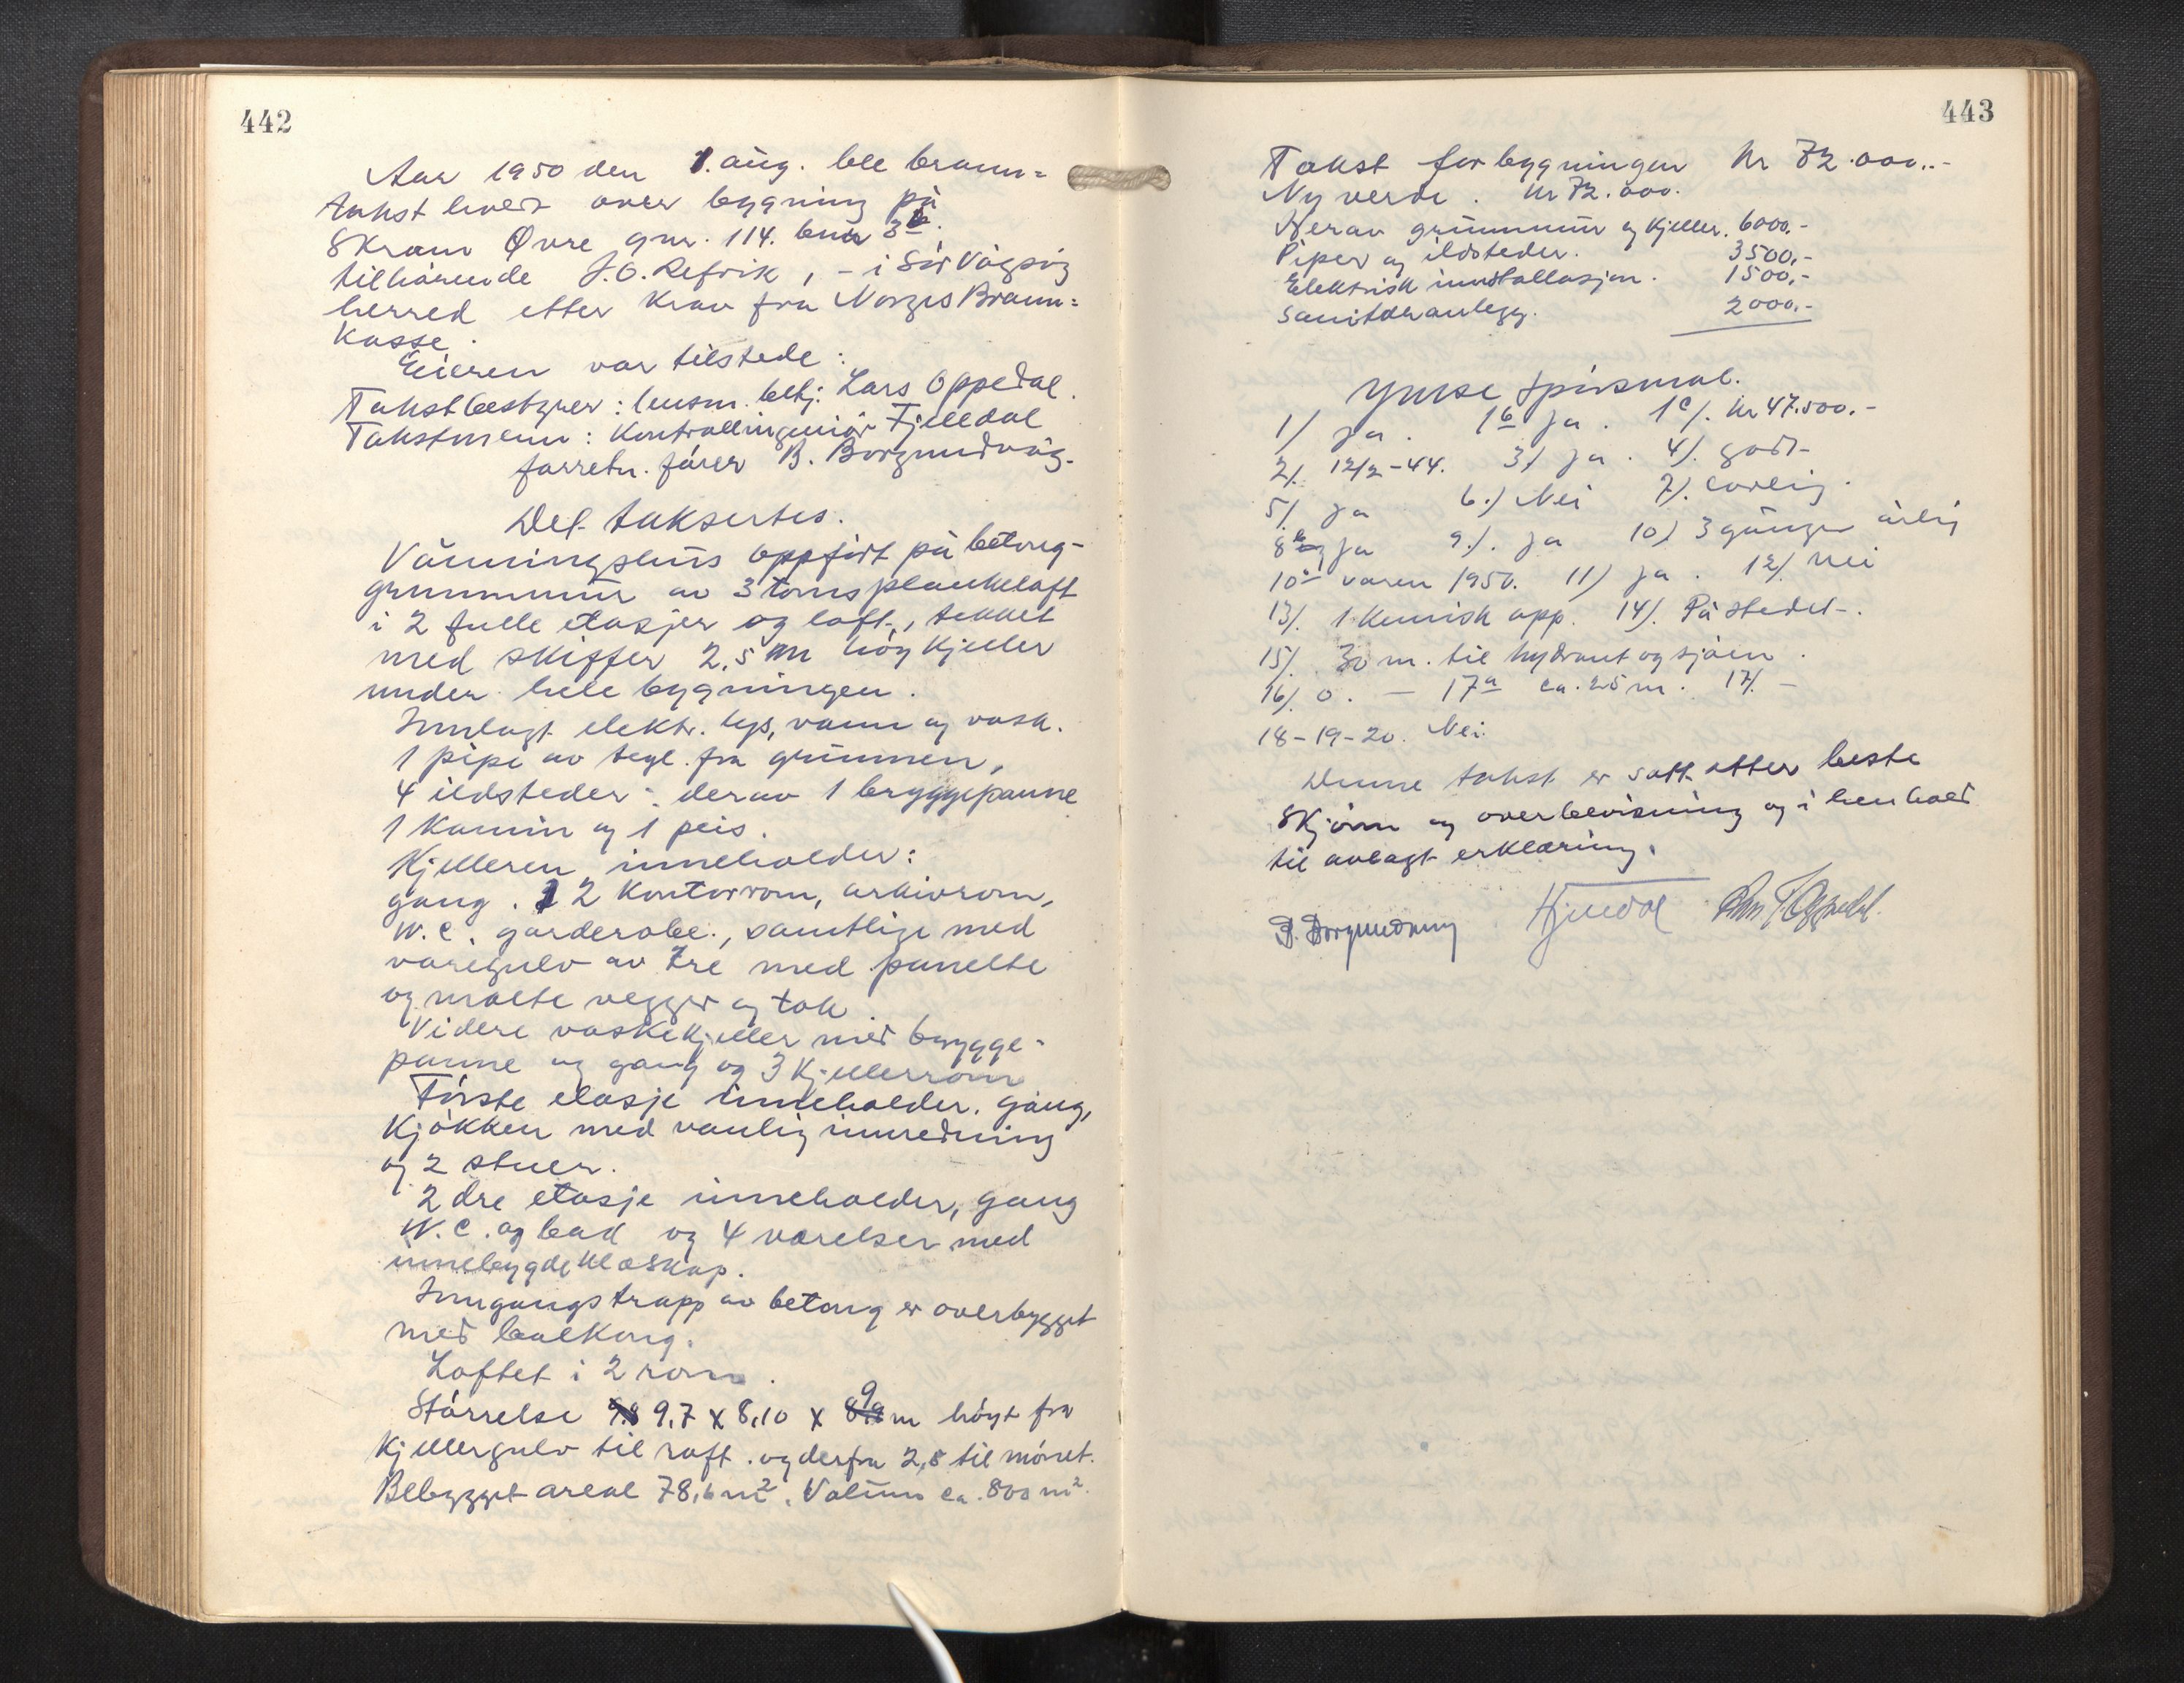 442
Aar 1950 den 1. aug. ble brann=
takst holdt over bygning på
Skram Øvre gnr. 114. bnr 3b.
tilhørende J.O. Refvik, - i Sør Vågsøy
herred etter krav fra Norges Brann=
kasse.
Eieren var tilstede:
Takstbestyrer: lensm. betj. Lars Oppedal.
Takstmenn: Kontrollingeniør Fjelldal
forretn. fører B. Borgundvåg.
Det taksertes.
Våningshus oppført på betong-
grunnmur av 3 toms plankelaft
i 2 fulle etasjer og loft, tekket
med skiffer 2,5 m høy kjeller
under hele bygningen.
Innlagt elektr. lys, vann og vask.
1 pipe av tegl. fra grunnen,
4 ildsteder: derav 1 bryggepanne
1 kamin og 1 peis.
Kjelleren inneholder:
gang. 2 kontorrom, arkivrom,
W.C. garderobe., samtlige med
varegulv av tre med panelte
og malte vegger og tak.
Videre vaskekjeller med brygge-
panne og gang og 3 kjellerrom
Første etasje inneholder. gang,
Kjøkken med vanlig innredning
og 2 stuer.
2 dre etasje inneholder, gang
W.C. og bad og 4 værelser med
innebygde klæskap.
Inngangstrapp av betong er overbygget
med balkong.
Loftet i 2 rom.
Størrelse 9,8 9,7 x 8,10 x 9 m høyt fra
kjellergulv til raft. og derfra 2,8 til mønet.
Bebygget areal 78,6 m². Volum ca. 800 m².
443
Takst for bygningen kr 72.000.-
Ny verdi. kr 72.000.
Herav grunnmur og kjeller. 6000.-
Piper og ildsteder. 3500,-
Elektrisk innstallasjon. 1500,-
Sanitæranlegg. 2000.-
Ymse spørsmål.
1/ ja. 1b ja. 1c/. kr 47.500.-
2/. 12/2-44. 3/ ja. 4/. godt-
5/. ja 6./ Nei 7/. lovlig.
8 ja 9./. ja 10/ 3 ganger årlig
10a våren 1950. 11/ ja. 12/. nei
13/. 1 kemisk app. 14/. På stedet-.
15/. 30 m. til hydrant og sjøen.
16/. 0. - 17a ca. 25 m. 17/. -
18-19-20. Nei.
Denne takst er satt etter beste
skjønn og overbevisning og i henhold
til avlagt erklæring.
B. Borgundvåg Fjelldal Lars Oppedal.